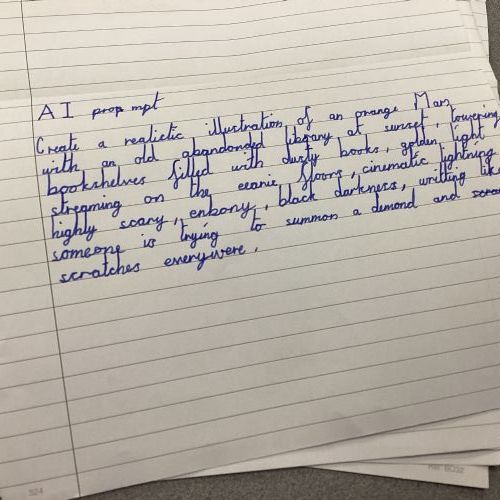 AI prop mpt
Create a realictic illustration of an orange Mars
with an old abandonded library at sunset, towering
bookshelves filled with dusty books, golden light
streaming on the eeanie floors, cinematic lightning
highly scary, enbony, black darkness, writting like
someone is trying to summon a demond and
scratches everywere.
324